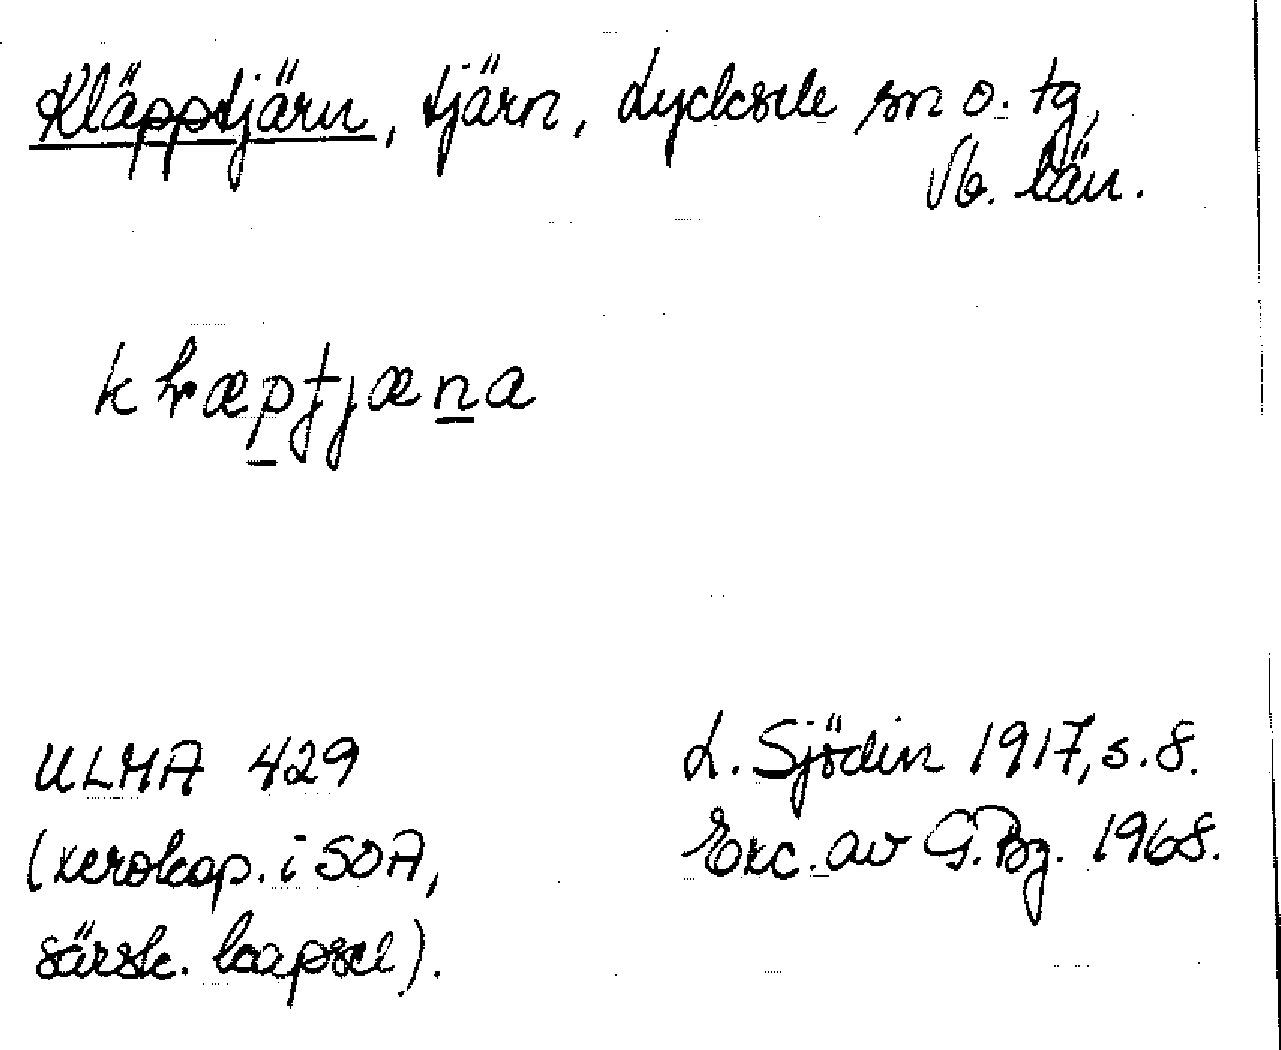 Kläpptjärn, tjärn, Lycksele sn o. tg,
Vb. län.
ULMA 429
(xerokop. i SOA,
särsk. kapsel).
L. Sjödin 1917, s. 8.
Exc. av G. Bg. 1968.